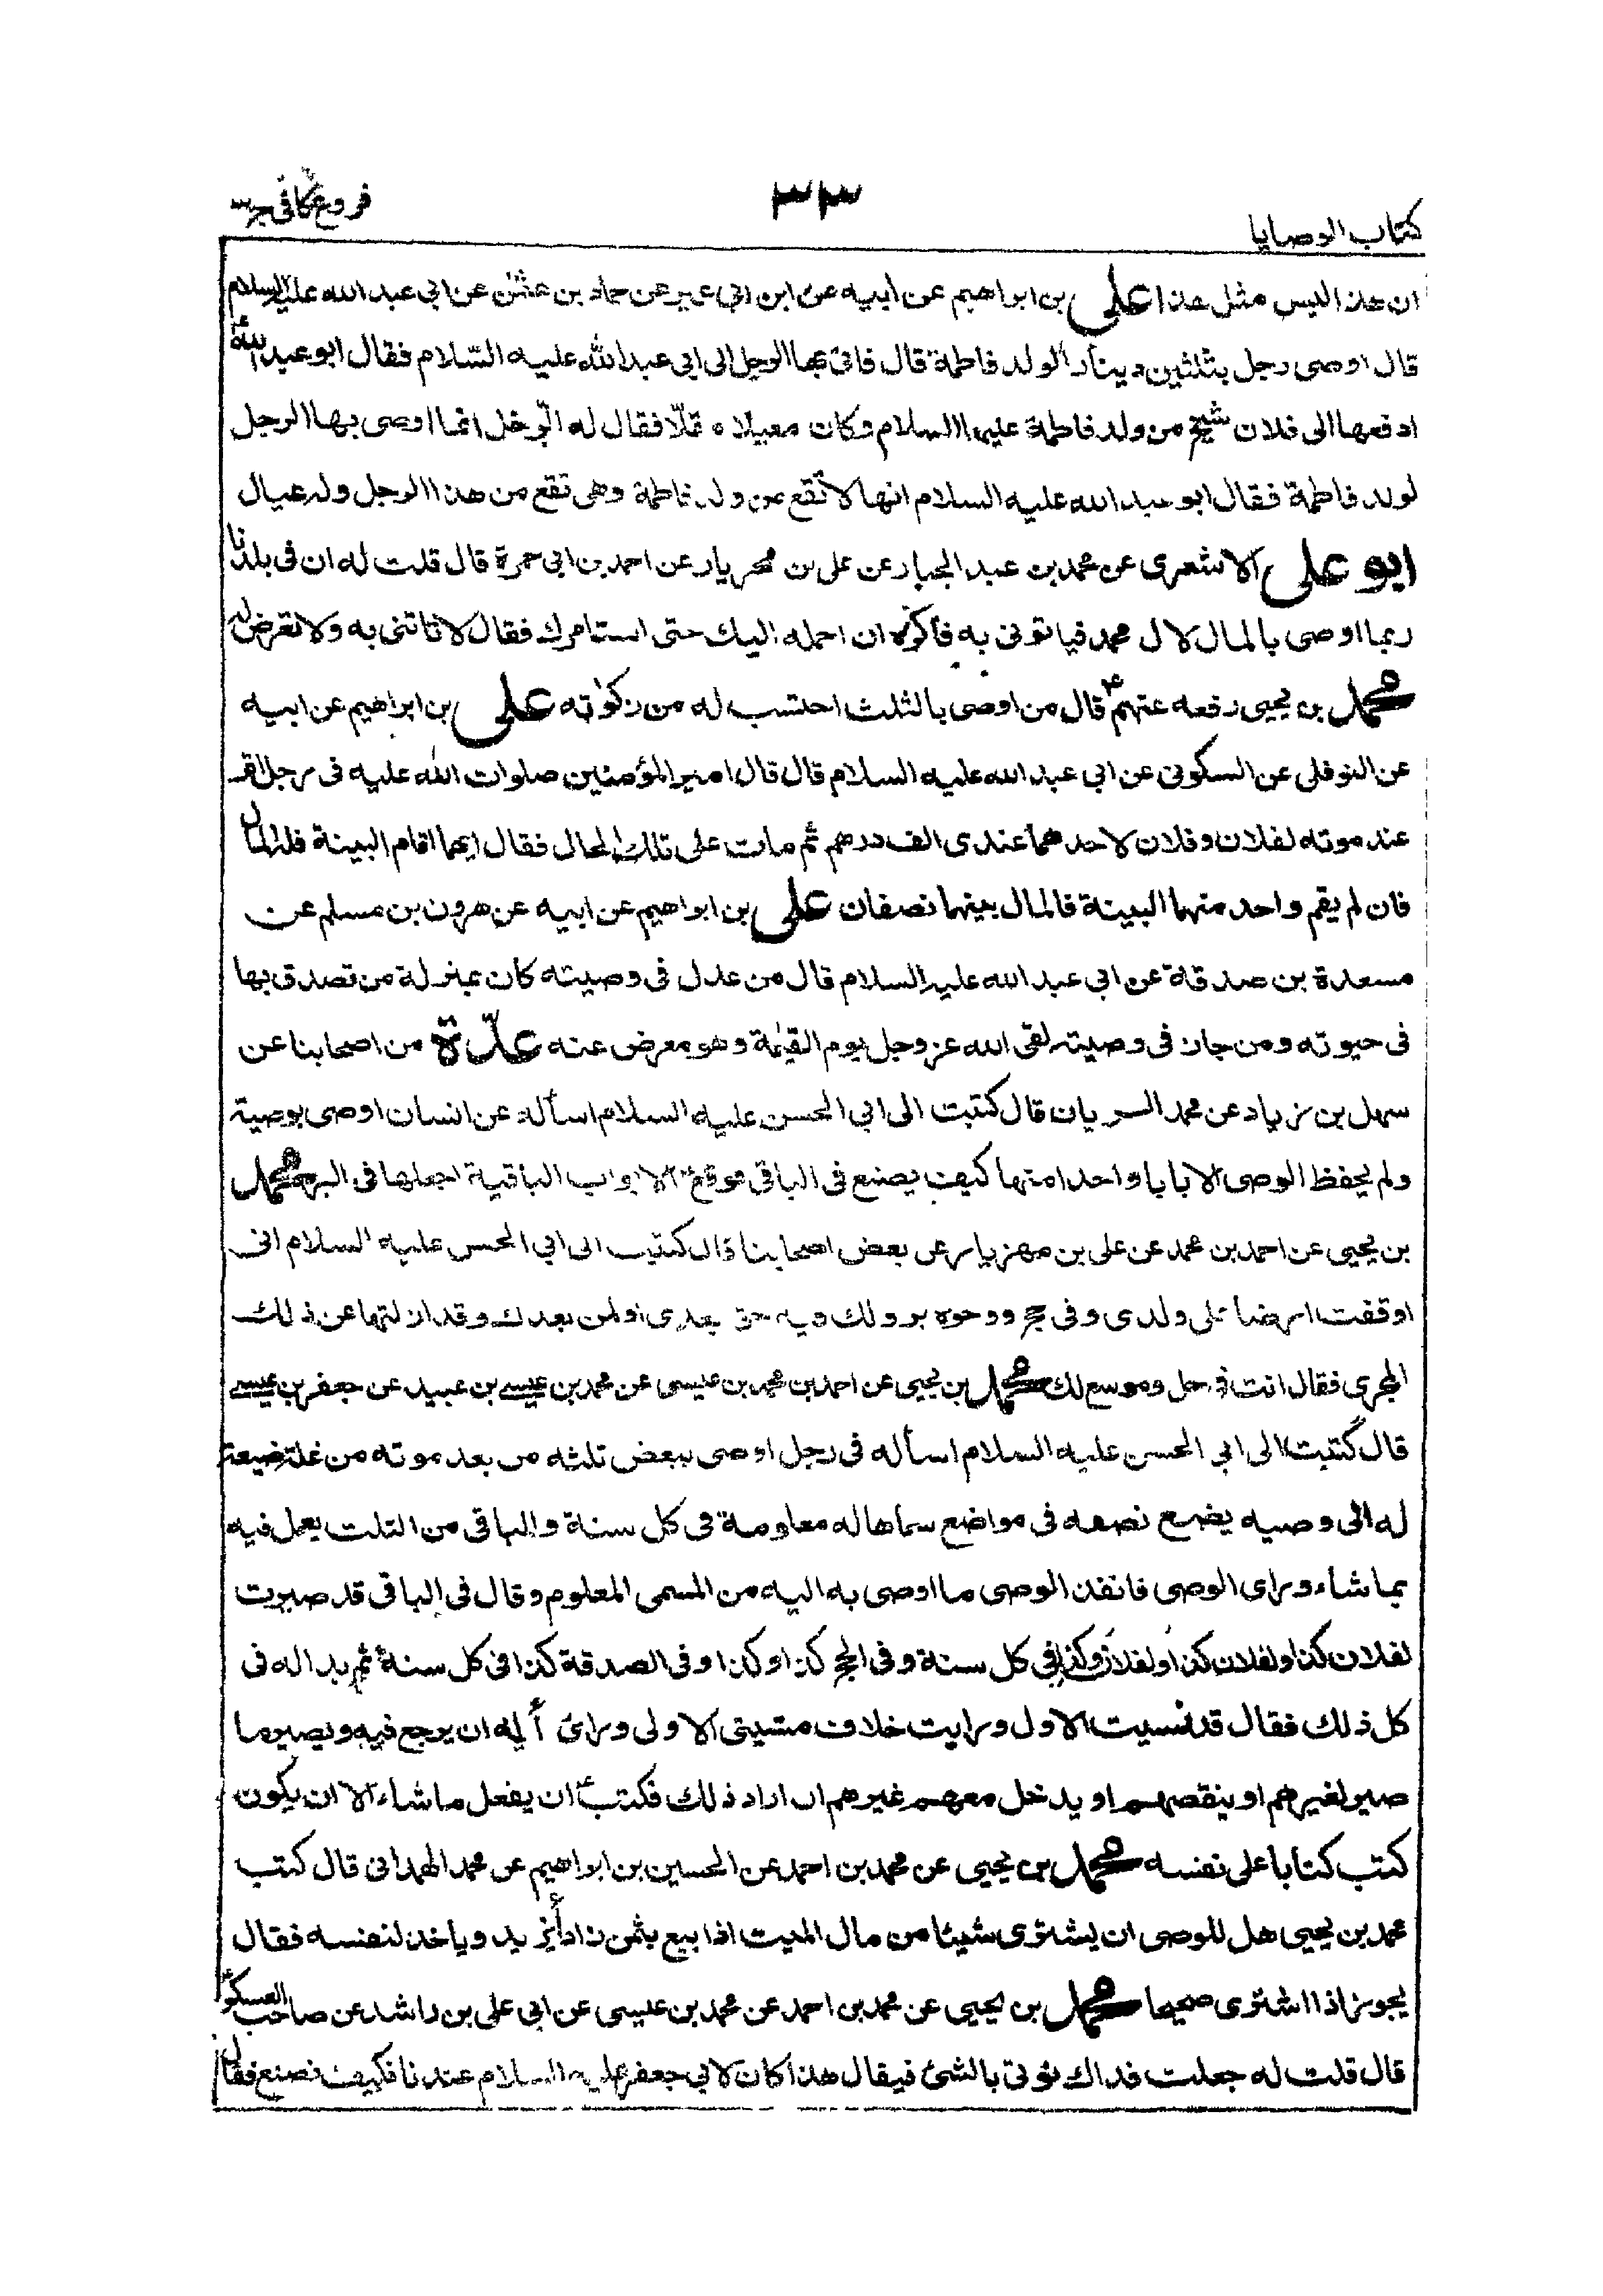 فروع كافى ج٣
٣٣
كتاب الوصايا
ان هذا ليس مثل هذا على بن ابراهيم عن ابيه عن ابن ابي عمير عن حماد بن عثمن عن ابي عبد الله عليه السلام
قال اوصى رجل بثلثين دينارا لولد فاطمة قال فاتى بها الرجل الى ابي عبد الله عليه السّلام فقال ابو عبد الله ع
ادفعها الى فلان شيخ من ولد فاطمة عليها السلام وكان معيلا مقلّا فقال له الرّجل انما اوصى بها الرجل
لولد فاطمة فقال ابو عبد الله عليه السلام انها لا تقع من ولد فاطمة وهى تقع من هذا الرجل وله عيال
ابو على الاشعرى عن محمد بن عبد الجبار عن على بن مهزيار عن احمد بن ابي حمزة قال قلت له ان فى بلدنا
ربما اوصى بالمال لال محمد فياتونى به فاكره ان احمله اليك حتى استامرك فقال لا تاتنى به ولا تعرض له
محمد بن يحيى رفعه عنهم ع قال من اوصى بالثلث احتسب له من زكوته على بن ابراهيم عن ابيه
عن النوفلى عن السكونى عن ابي عبد الله عليه السلام قال قال امير المؤمنين صلوات الله عليه فى رجل اقر
عند موته لفلان وفلان لاحدهما عندى الف درهم ثم مات على تلك الحال فقال ايهما اقام البينة فله المال
فان لم يقم واحد منهما البينة فالمال بينهما نصفان على بن ابراهيم عن ابيه عن هرون بن مسلم عن
مسعدة بن صدقة عن ابي عبد الله عليه السلام قال من عدل فى وصيته كان بمنزلة من تصدق بها
فى حيوته ومن جار فى وصيته لقى الله عز وجل يوم القيٰمة وهو معرض عنه عدّة من اصحابنا عن
سهل بن زياد عن محمد الريان قال كتبت الى ابي الحسن عليه السلام اسأله عن انسان اوصى بوصية
ولم يحفظ الوصى الا بابا واحدا منها كيف يصنع فى الباقى فوقع ع الابواب الباقية اجعلها فى البر محمد
بن يحيى عن احمد بن محمد عن على بن مهزيار عن بعض اصحابنا قال كتبت الى ابي الحسن عليه السلام انى
اوقفت ارضا على ولدى وفى حج ووجوه بر ولك فيه حق بعدى او لمن بعدك وقد ازلتها عن ذلك
المجرى فقال انت فى حل وموسع لك محمد بن يحيى عن احمد بن محمد بن عيسى عن محمد بن عيسى بن عبيد عن جعفر بن عيسى
قال كتبت الى ابي الحسن عليه السلام اسأله فى رجل اوصى ببعض ثلثه من بعد موته من غلة ضيعة
له الى وصيه يضع نصفه فى مواضع سماها له معلومة فى كل سنة والباقى من الثلث يعمل فيه
بما شاء وراى الوصى فانفذ الوصى ما اوصى به اليه من المسمى المعلوم وقال فى الباقى قد صيرت
لفلان كذا ولفلان كذا ولفلان كذا فى كل سنة وفى الحج كذا وكذا وفى الصدقة كذا فى كل سنة ثم بدا له فى
كل ذلك فقال قد نسيت الاول ورايت خلاف مشيتى الاولى ورائ أله ان يرجع فيه ويصير ما
صير لغيرهم او ينقصهم او يدخل معهم غيرهم ان اراد ذلك فكتب ع ان يفعل ما شاء الا ان يكون
كتب كتابا على نفسه محمد بن يحيى عن محمد بن احمد عن الحسين بن ابراهيم عن محمد الهمدانى قال كتب
محمد بن يحيى هل للوصى ان يشترى شيئا من مال الميت اذا بيع بثمن زاد أيزيد وياخذ لنفسه فقال
يجوز اذا اشترى صحيحا محمد بن يحيى عن محمد بن احمد عن محمد بن عيسى عن ابي على بن راشد عن صاحب العسكر ع
قال قلت له جعلت فداك نؤتى بالشئ فيقال هذا كان لابي جعفر عليه السلام عندنا فكيف نصنع فقال